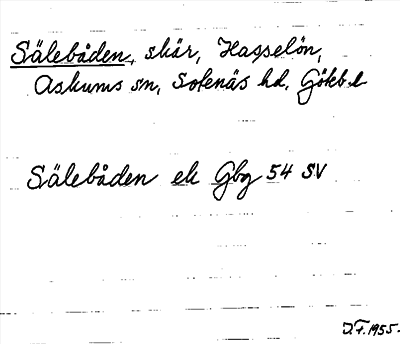 Sälebåden, skär, Hasselön,
Askums sn, Sotenäs hd, Götebl
Sälebåden ek Gbg 54 SV
D.F. 1955.